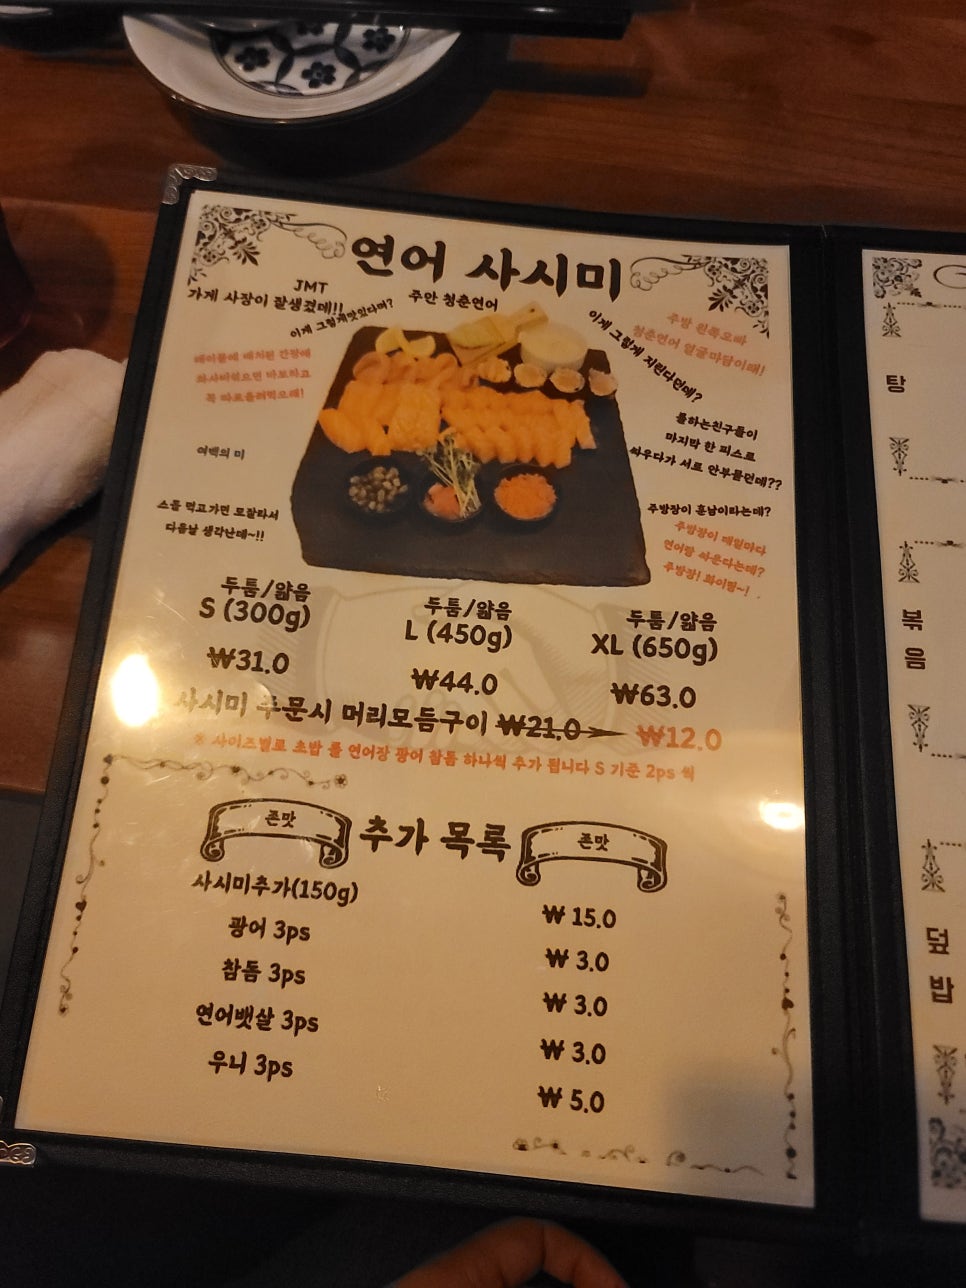 연어 사시미
JMT
가게 사장이 잘생겼데!!
이게 그렇게맛있다며?
주안 청춘연어
이게 그렇게 지린다던데?
주방 왼쪽오빠
청춘연어 얼굴마담이래!
테이블에 배치된 간장에
와사비섞으면 바보라고
꼭 따로올려먹으래!
롤하는친구들이
마지막 한 피스로
싸우다가 서로 안부물던데??
여백의 미
스돌 먹고가면 모잘타서
다음날 생각난데~!!
주방장이 훈남이라는데?
주방장이 매일마다
연어랑 싸운다는데?
주방장! 화이팅~!
두툼/얇음
S (300g)
₩31.0
두툼/얇음
L (450g)
₩44.0
두툼/얇음
XL (650g)
₩63.0
사시미 주문시 머리모듬구이 ₩21.0 ₩12.0
※ 사이즈별로 초밥 롤 연어장 광어 참돔 하나씩 추가 됩니다 S 기준 2ps 씩
존맛 추가 목록 존맛
사시미추가(150g) ₩ 15.0
광어 3ps ₩ 3.0
참돔 3ps ₩ 3.0
연어뱃살 3ps ₩ 3.0
우니 3ps ₩ 5.0
탕
볶
음
덮
밥